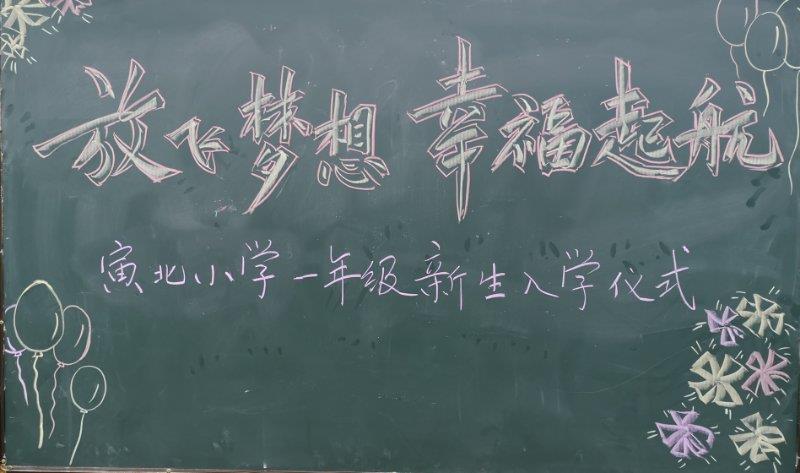 放飞梦想 幸福起航
寅北小学一年级新生入学仪式